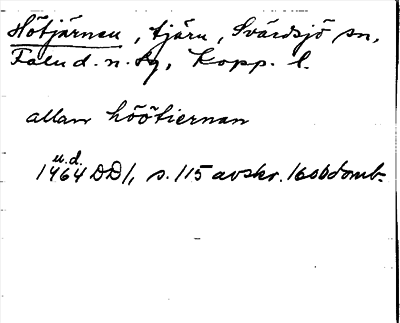 Hötjärnen, tjärn, Svärdsjö sn,
Falu d. n. tg, Kopp. l.
allan höötiernan
u.d.
1464 DD1, s. 115 avskr. 1600domb.